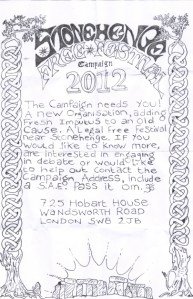 STONEHENGE
FREE FESTIVAL
Campaign
2012
The Campaign needs you!
A new Organisation, adding
Fresh Impulse to an Old
Cause. A Legal Free Festival
near Stonehenge. If You
would like to know more,
are interested in engaging
in debate or would like
to help out contact the
Campaign Address, include
a S.A.E. Pass it om.
725 Hobart House
Wandsworth Road
London SW8 2JB